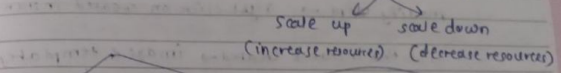 scale up scale down
(increase resources) (decrease resources)